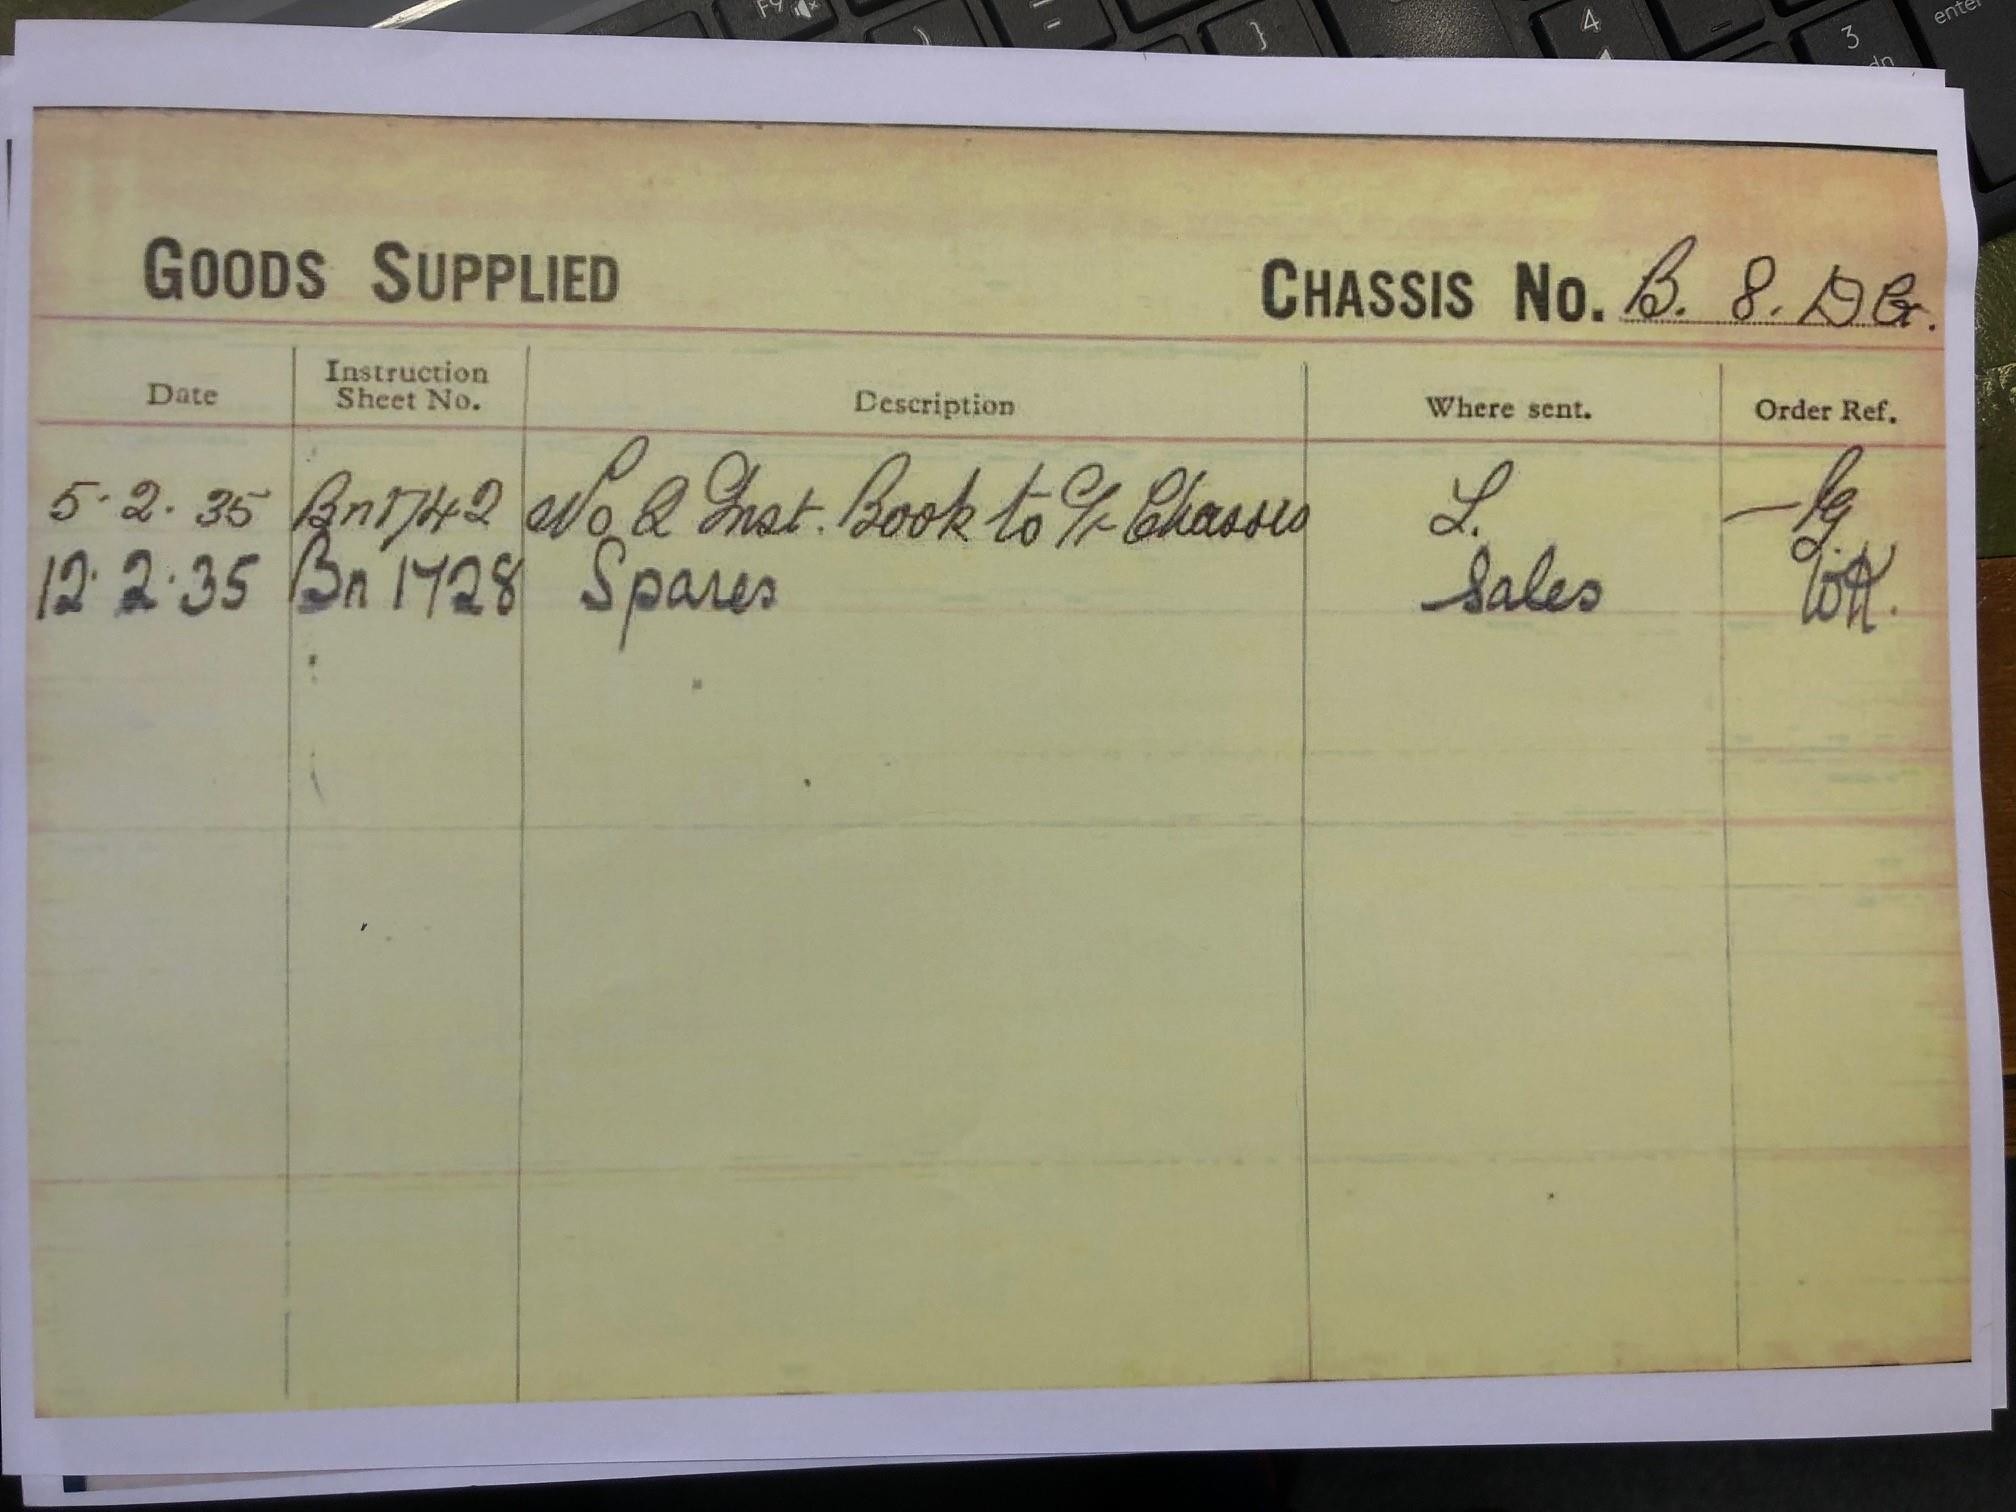 F9
)
=
}
4
-
3
dn
enter
GOODS SUPPLIED CHASSIS No. B. 8. DG.
Date Instruction Sheet No. Description Where sent. Order Ref.
5.2.35 Bn1742 No 2 Inst. Book to Chassis L.
12.2.35 Bn 1728 Spares Sales